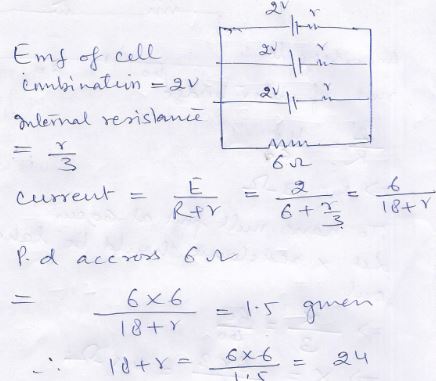 2V r
2V r
2V r
6 Ω
Emf of cell
combination = 2V
internal resistance
= r/3
Current = E/(R+r) = 2/(6 + r/3) = 6/(18+r)
P.d accross 6 Ω
= (6×6)/(18+r) = 1.5 given
∴ 18+r = (6×6)/1.5 = 24